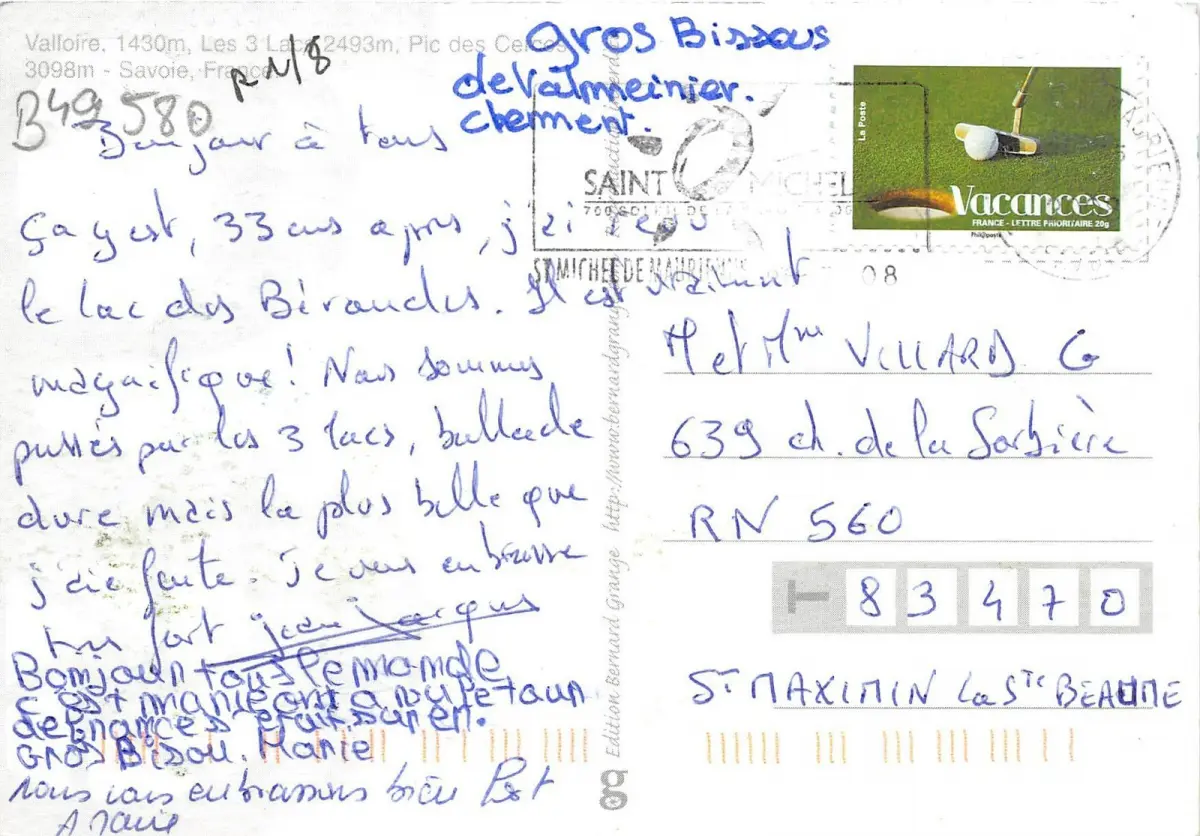 Valloire, 1430m, Les 3 Lacs 2493m, Pic des Cerces
3098m - Savoie, France
RN/8
B49 580
Gros Bissous
de Valmeinier.
cherment.
Bonjour à tous
Ça y est, 33 ans apres, j'ai revu
le lac des Béraudes. Il est vraiment
magnifique! Nous sommes
passés par les 3 lacs, ballade
dure mais la plus belle que
j'aie faite. je vous embrasse
tres fort jean jacques
Bonjour tous le monde
c'est manie on a vu le tour
de france s'était super.
Gros Bisou. Marie
nous vous embrassons bien fort
La Poste
Vacances
FRANCE - LETTRE PRIORITAIRE 20g
Phil@poste
SAINT MICHEL
ST MICHEL DE MAURIENNE
08
M et Mme VILLARD G
639 ch. de la Sorbière
RN 560
83470
St MAXIMIN La Ste BEAUME
Edition Bernard Grange http://www.bernardgrange